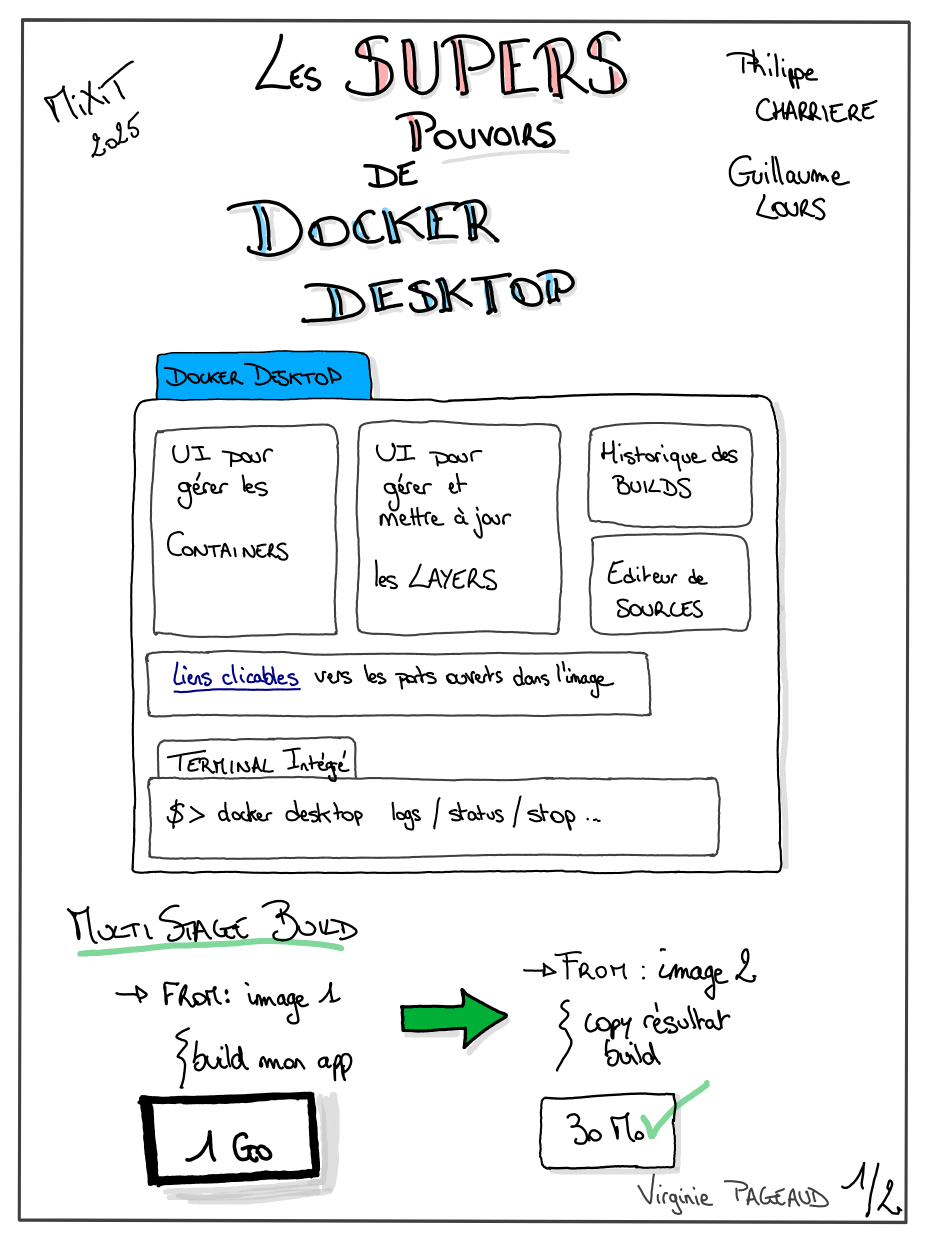 MiXiT
2025
LES SUPERS
POUVOIRS
DE
DOCKER
DESKTOP
Philippe
CHARRIERE
Guillaume
LOURS
DOCKER DESKTOP
UI pour
gérer les
CONTAINERS
UI pour
gérer et
mettre à jour
les LAYERS
Historique des
BUILDS
Editeur de
SOURCES
Liens clicables vers les ports ouverts dans l'image
TERMINAL Intégé
$> docker desktop logs / status / stop ...
MULTI STAGE BUILD
→ FROM: image 1
build mon app
1 Go
→ FROM : image 2
copy résultat
build
30 Mo
Virginie PAGEAUD 1/2